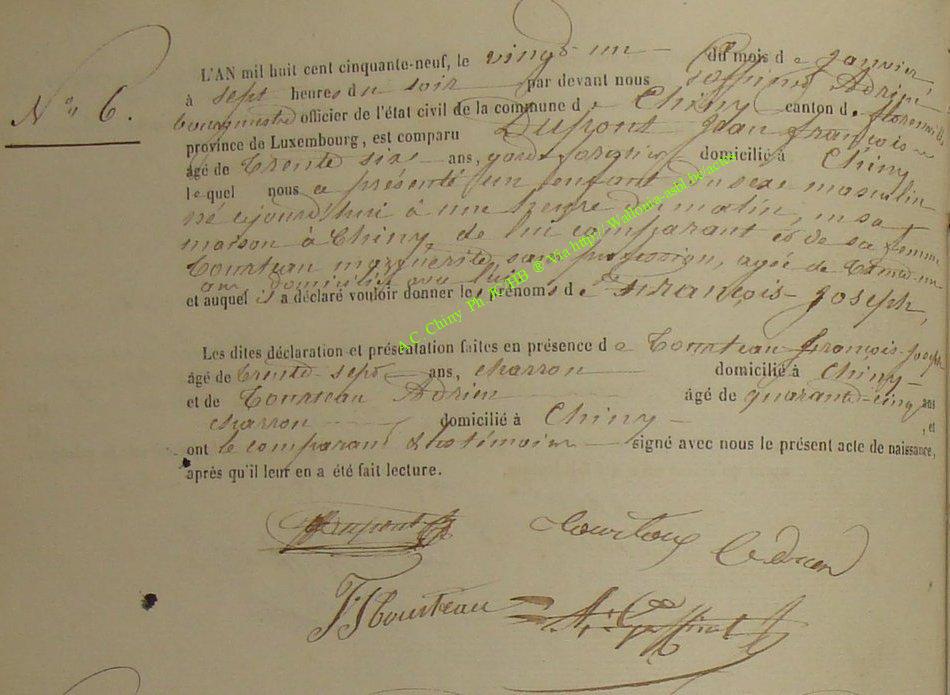 L'AN mil huit cent cinquante-neuf, le vingt un du mois de janvier
N° 6.
à sept heures du soir par devant nous Adrien
bourgmestre officier de l'état civil de la commune de Chiny canton de florenville
province de Luxembourg, est comparu Dupont Jean françois
âgé de trente six ans, garde forestier domicilié à Chiny
lequel nous a présenté un enfant du sexe masculin
né ejourd'hui à une heure du matin, en sa
maison à Chiny, de lui comparant et de sa femme
Tourteau marguerite, sans profession, agée de trente un
ans domiciliée avec lui
et auquel il a déclaré vouloir donner les prénoms de françois Joseph,
Les dites déclaration et présentation faites en présence de Tourteau françois Joseph
âgé de trente sept ans, charron domicilié à Chiny
et de Tourteau Adrien âgé de quarante-cinq ans
charron domicilié à Chiny , et
ont le comparant & les témoins signé avec nous le présent acte de naissance,
après qu'il leur en a été fait lecture.
Dupont
FJ Tourteau
A C Chiny Ph @ Via http://Wallonia-asbl.be/actes